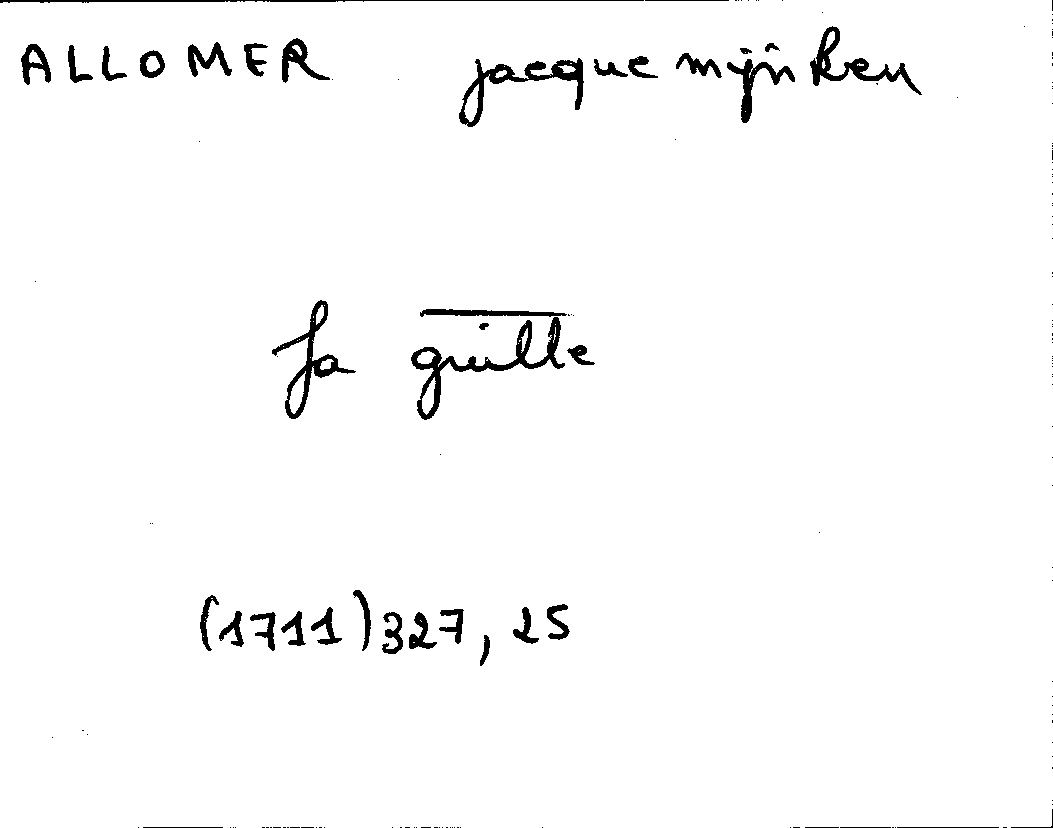 ALLOMER jacque mijn heu
Ja guille
(1711) 327, 25